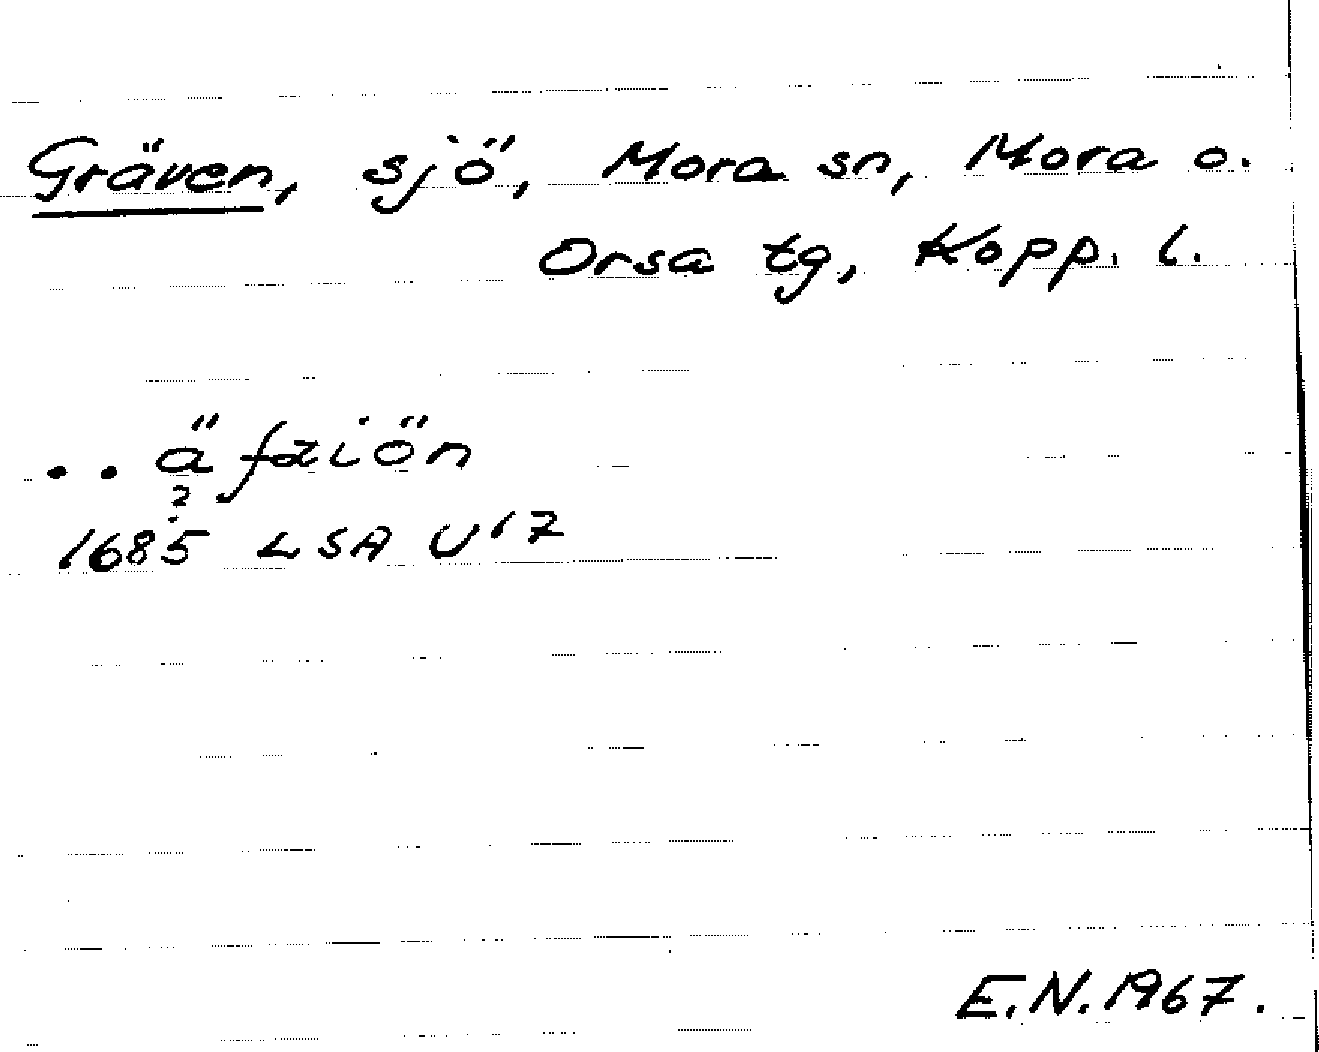 Gräven, sjö, Mora sn, Mora o.
Orsa tg, Kopp. l.
. . äfziön
?
1685 LSA U17
E.N. 1967.